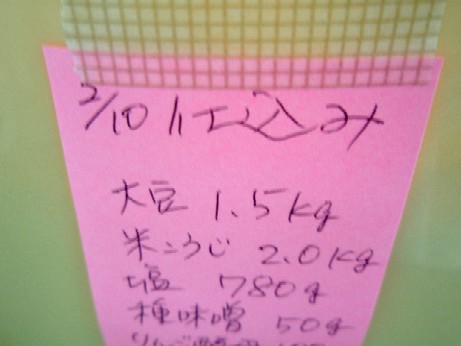 2/10 仕込み
大豆 1.5kg
米こうじ 2.0kg
塩 780g
種味噌 50g